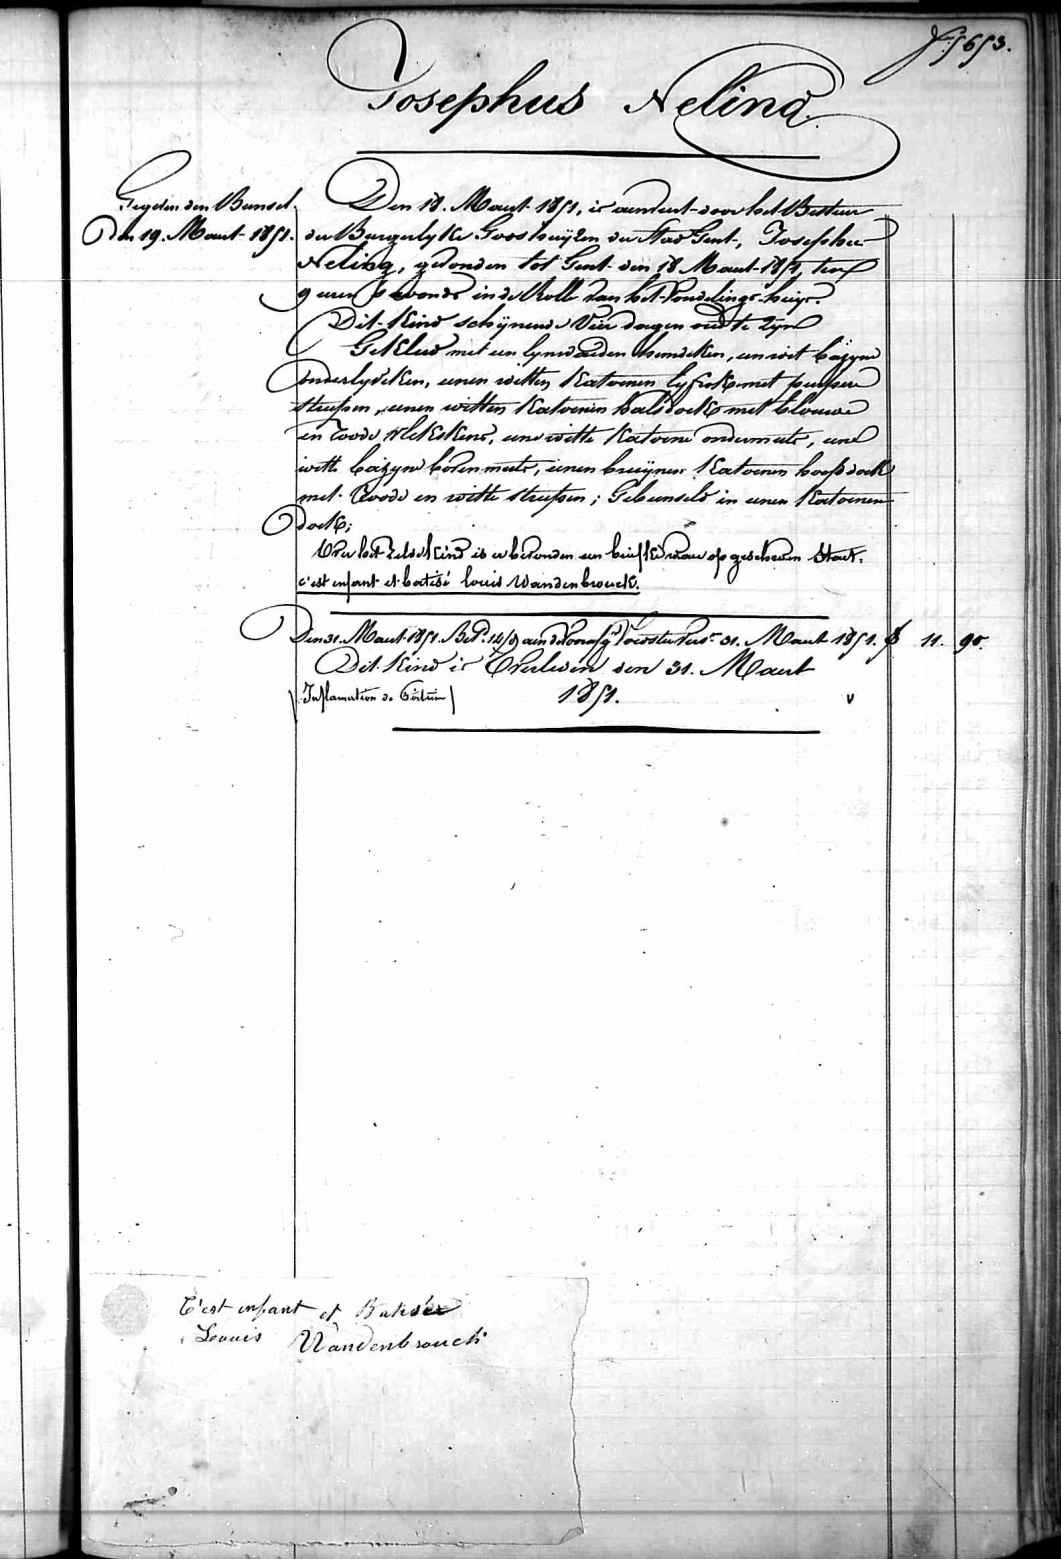 5653.
Josephus Neling.
Den 18. Maart 1851, is aenveert door het Bestuer
den 19. Maart 1851.
der Burgerlyke Gooshuyzen der Stad Gent, Josephus
Neling, gevonden tot Gent den 18 Maart 1851, ten
9 uren s'avonds in de Rolle van het Vondelings-huys.
Dit Kind schynende Vier dagen oud te zyn
Gekleed met een lynwaeden hemdeken, een wit bazyne
onderlyveken, eenen witten Katoenen lyfrok met purpere
streepen, eenen witten Katoenen halsdoek met blauwe
en roode vlekskens, eene witte Katoene ondermuts, eene
witte bazyne bovenmuts, eenen bruynen Katoenen hoofsdoek
met roode en witte streepen; Gebunseld in eenen Katoenen
doek;
Over het zelve Kind is er bevonden een briefke waer op geschreven Staet.
c'est enfant et batisé louis Vandenbrouck.
Den 31. Maart 1851. 31. Maart 1851. 11. 90.
Dit Kind is Overleden den 31. Maart
1851.
Inflamation de
C'est enfant et Batisée
Leouis Vandenbrouck